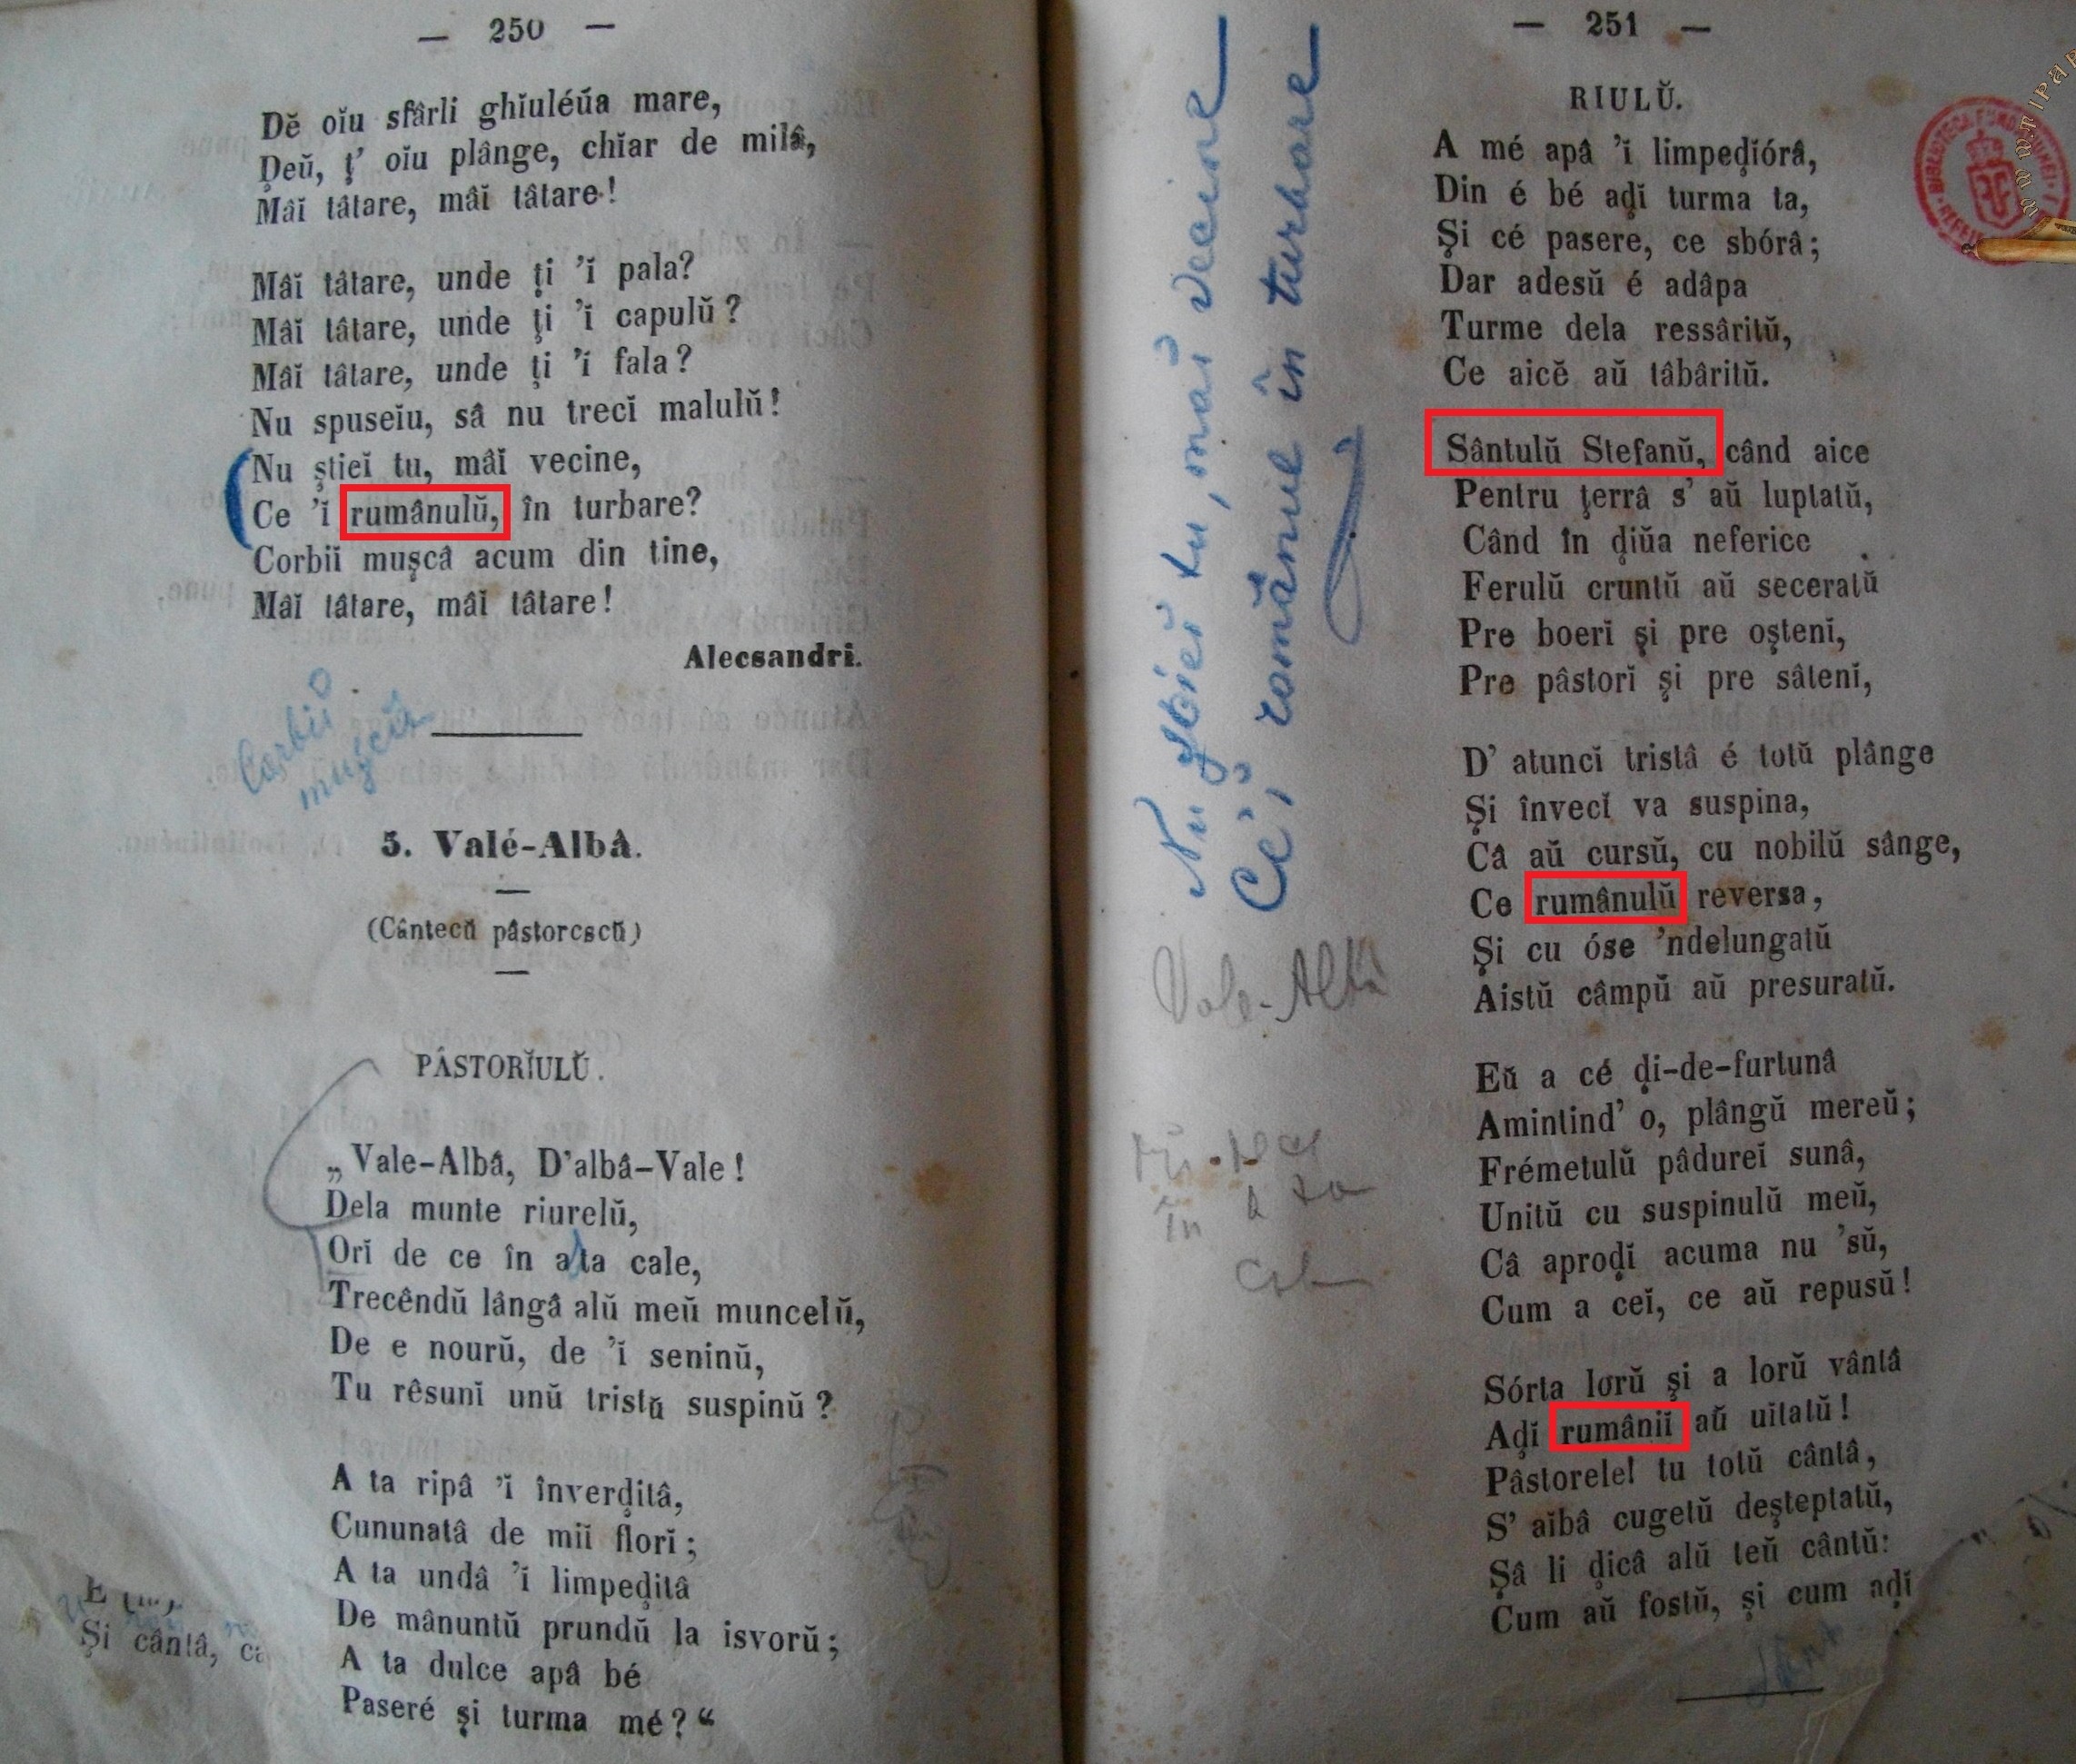 — 250 —
Dĕ oĭu sfârli ghĭuléŭa mare,
D̦eŭ, ţ' oĭu plânge, chĭar de milâ,
Mâĭ tâtare, mâĭ tâtare!
Mâĭ tâtare, unde ţi 'ĭ pala?
Mâĭ tâtare, unde ţi 'ĭ capulŭ?
Mâĭ tâtare, unde ţi 'ĭ fala?
Nu spuseĭu, sâ nu trecĭ malulŭ!
Nu ştieĭ tu, mâĭ vecine,
Ce 'ĭ rumânulŭ, în turbare?
Corbiĭ muşcâ acum din tine,
Mâĭ tâtare, mâĭ tâtare!
Alecsandri.
Corbii
muşcă
5. Valé-Albâ.
(Cântecŭ pâstorescŭ)
PÂSTORĬULŬ.
„Vale-Albâ, D'albâ-Vale!
Dela munte riurelŭ,
Orĭ de ce în a ta cale,
Trecêndŭ lângâ alŭ meŭ muncelŭ,
De e nourŭ, de 'ĭ seninŭ,
Tu rêsunĭ unŭ tristŭ suspinŭ?
A ta ripâ 'ĭ înverd̦itâ,
Cununatâ de miĭ florĭ;
A ta undâ 'ĭ limped̦itâ
De mânuntŭ prundŭ la isvorŭ;
A ta dulce apâ bé
Paseré şi turma mé?"
Şi cântâ,
Nu ştiei tu, măi vecine
Ce'i românul în turbare
Vale-Albă
în
— 251 —
RIULŬ.
A mé apâ 'ĭ limped̦ĭórâ,
Din é bé ad̦ĭ turma ta,
Şi cé pasere, ce sbórâ;
Dar adesŭ é adâpa
Turme dela ressâritŭ,
Ce aicĕ aŭ tâbâritŭ.
Sântulŭ Stefanŭ, când aice
Pentru ţerrâ s' aŭ luptatŭ,
Când în d̦iŭa neferice
Ferulŭ cruntŭ aŭ seceratŭ
Pre boerĭ şi pre oştenĭ,
Pre pâstorĭ şi pre sâtenĭ,
D' atuncĭ tristâ é totŭ plânge
Şi învecĭ va suspina,
Câ aŭ cursŭ, cu nobilŭ sânge,
Ce rumânulŭ reversa,
Şi cu óse 'ndelungatŭ
Aistŭ câmpŭ aŭ presuratŭ.
Eŭ a cé d̦i-de-furtunâ
Amintind' o, plângŭ mereŭ;
Frémetulŭ pâdureĭ sunâ,
Unitŭ cu suspinulŭ meŭ,
Câ aprod̦ĭ acuma nu 'sŭ,
Cum a ceĭ, ce aŭ repusŭ!
Sórta lorŭ şi a lorŭ vântâ
Ad̦ĭ rumâniĭ aŭ uitatŭ!
Pâstorele! tu totŭ cântâ,
S' aĭbâ cugetŭ deşteptatŭ,
Şâ li d̦icâ alŭ teŭ cântŭ:
Cum aŭ fostŭ, şi cum ad̦ĭ